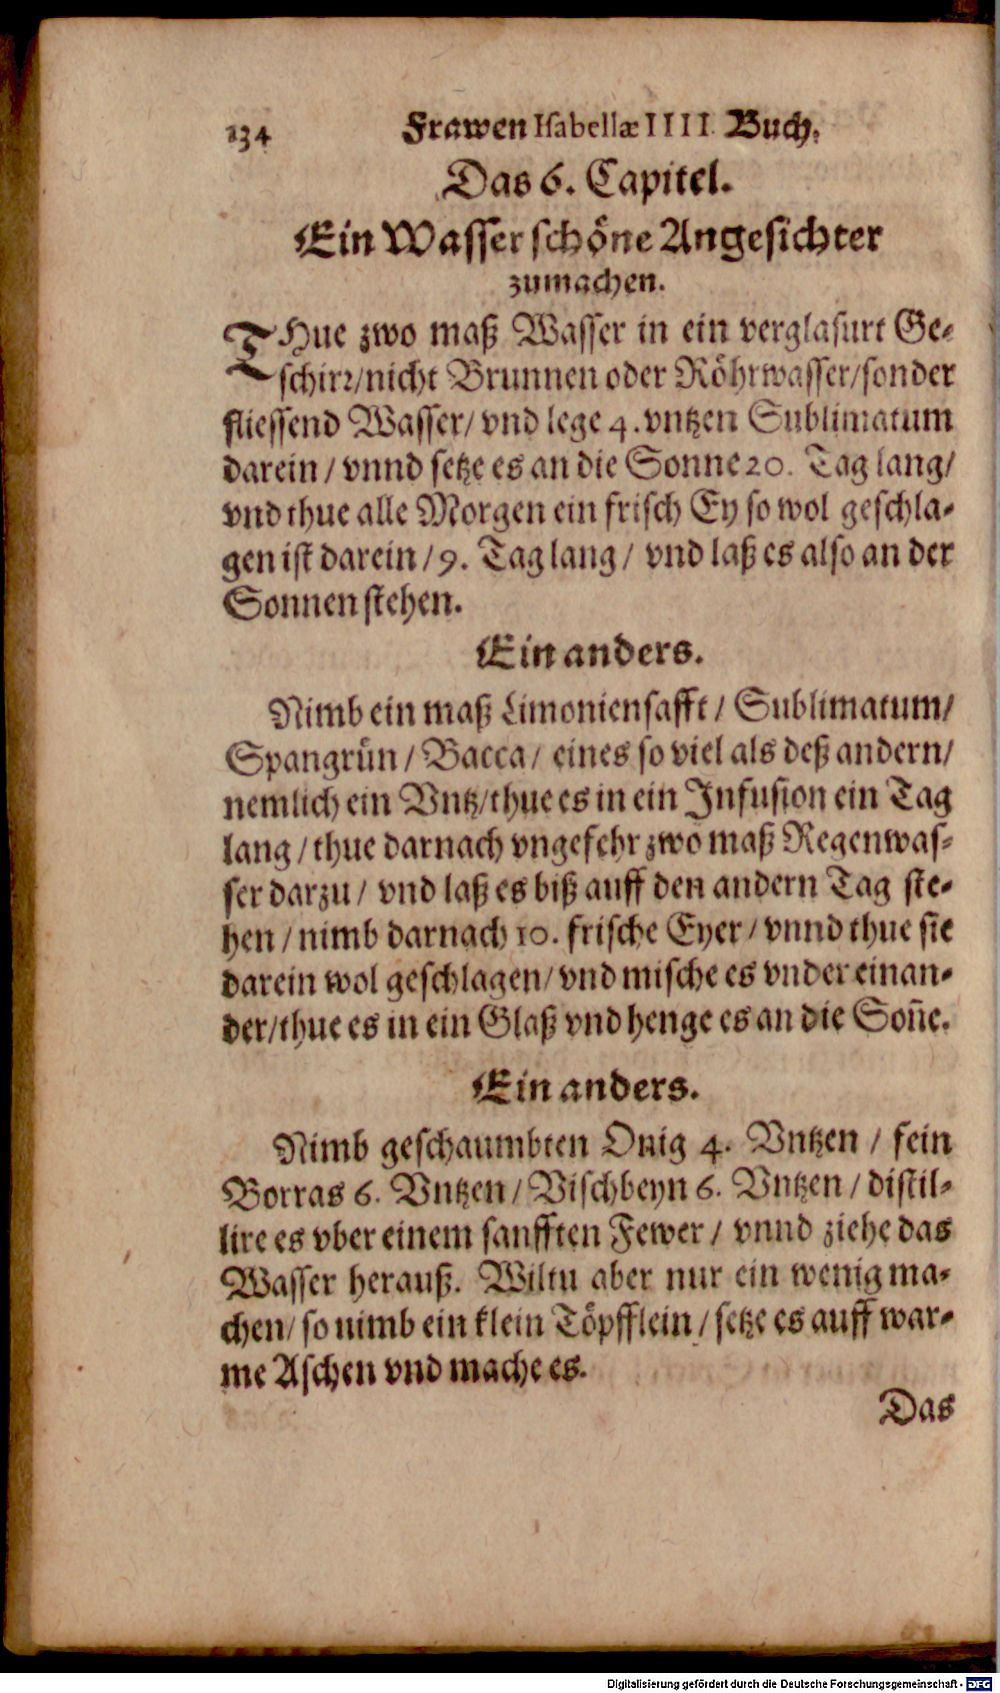 134 Frawen Isabellæ IIII. Buch.
Das 6. Capitel.
Ein Wasser schöne Angesichter
zumachen.
THue zwo maß Wasser in ein verglasurt Ge-
schirr/nicht Brunnen oder Röhrwasser/sonder
fliessend Wasser/ vnd lege 4. vntzen Sublimatum
darein / vnnd setze es an die Sonne 20. Tag lang/
vnd thue alle Morgen ein frisch Ey so wol geschla-
gen ist darein / 9. Tag lang / vnd laß es also an der
Sonnen stehen.
Ein anders.
Nimb ein maß Limoniensafft / Sublimatum/
Spangrün / Bacca / eines so viel als deß andern/
nemlich ein Vntz/thue es in ein Infusion ein Tag
lang / thue darnach vngefehr zwo maß Regenwas-
ser darzu / vnd laß es biß auff den andern Tag ste-
hen / nimb darnach 10. frische Eyer / vnnd thue sie
darein wol geschlagen/ vnd mische es vnder einan-
der/thue es in ein Glaß vnd henge es an die Soñe.
Ein anders.
Nimb geschaumbten Onig 4. Vntzen / fein
Borras 6. Vntzen / Vischbeyn 6. Vntzen / distil-
lire es vber einem sanfften Fewer / vnnd ziehe das
Wasser herauß. Wiltu aber nur ein wenig ma-
chen/ so nimb ein klein Töpfflein / setze es auff war-
me Aschen vnd mache es.
Das
Digitalisierung gefördert durch die Deutsche Forschungsgemeinschaft - DFG